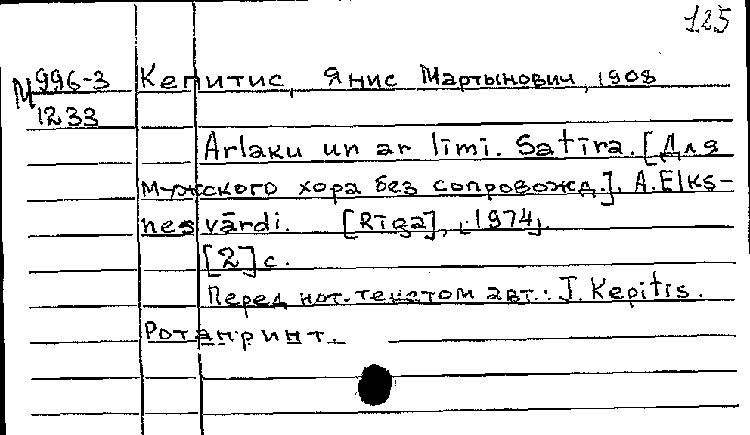 125
М996-3 Кепитис, Янис Мартынович, 1908
1233
Arlaku un ar līmi. Satīra. [Для
мужского хора без сопровожд.]. A. Elks-
nes vārdi. [Rīga], [1974].
[2] с.
Перед нот. текстом авт.: J. Kepitis.
Ротапринт.